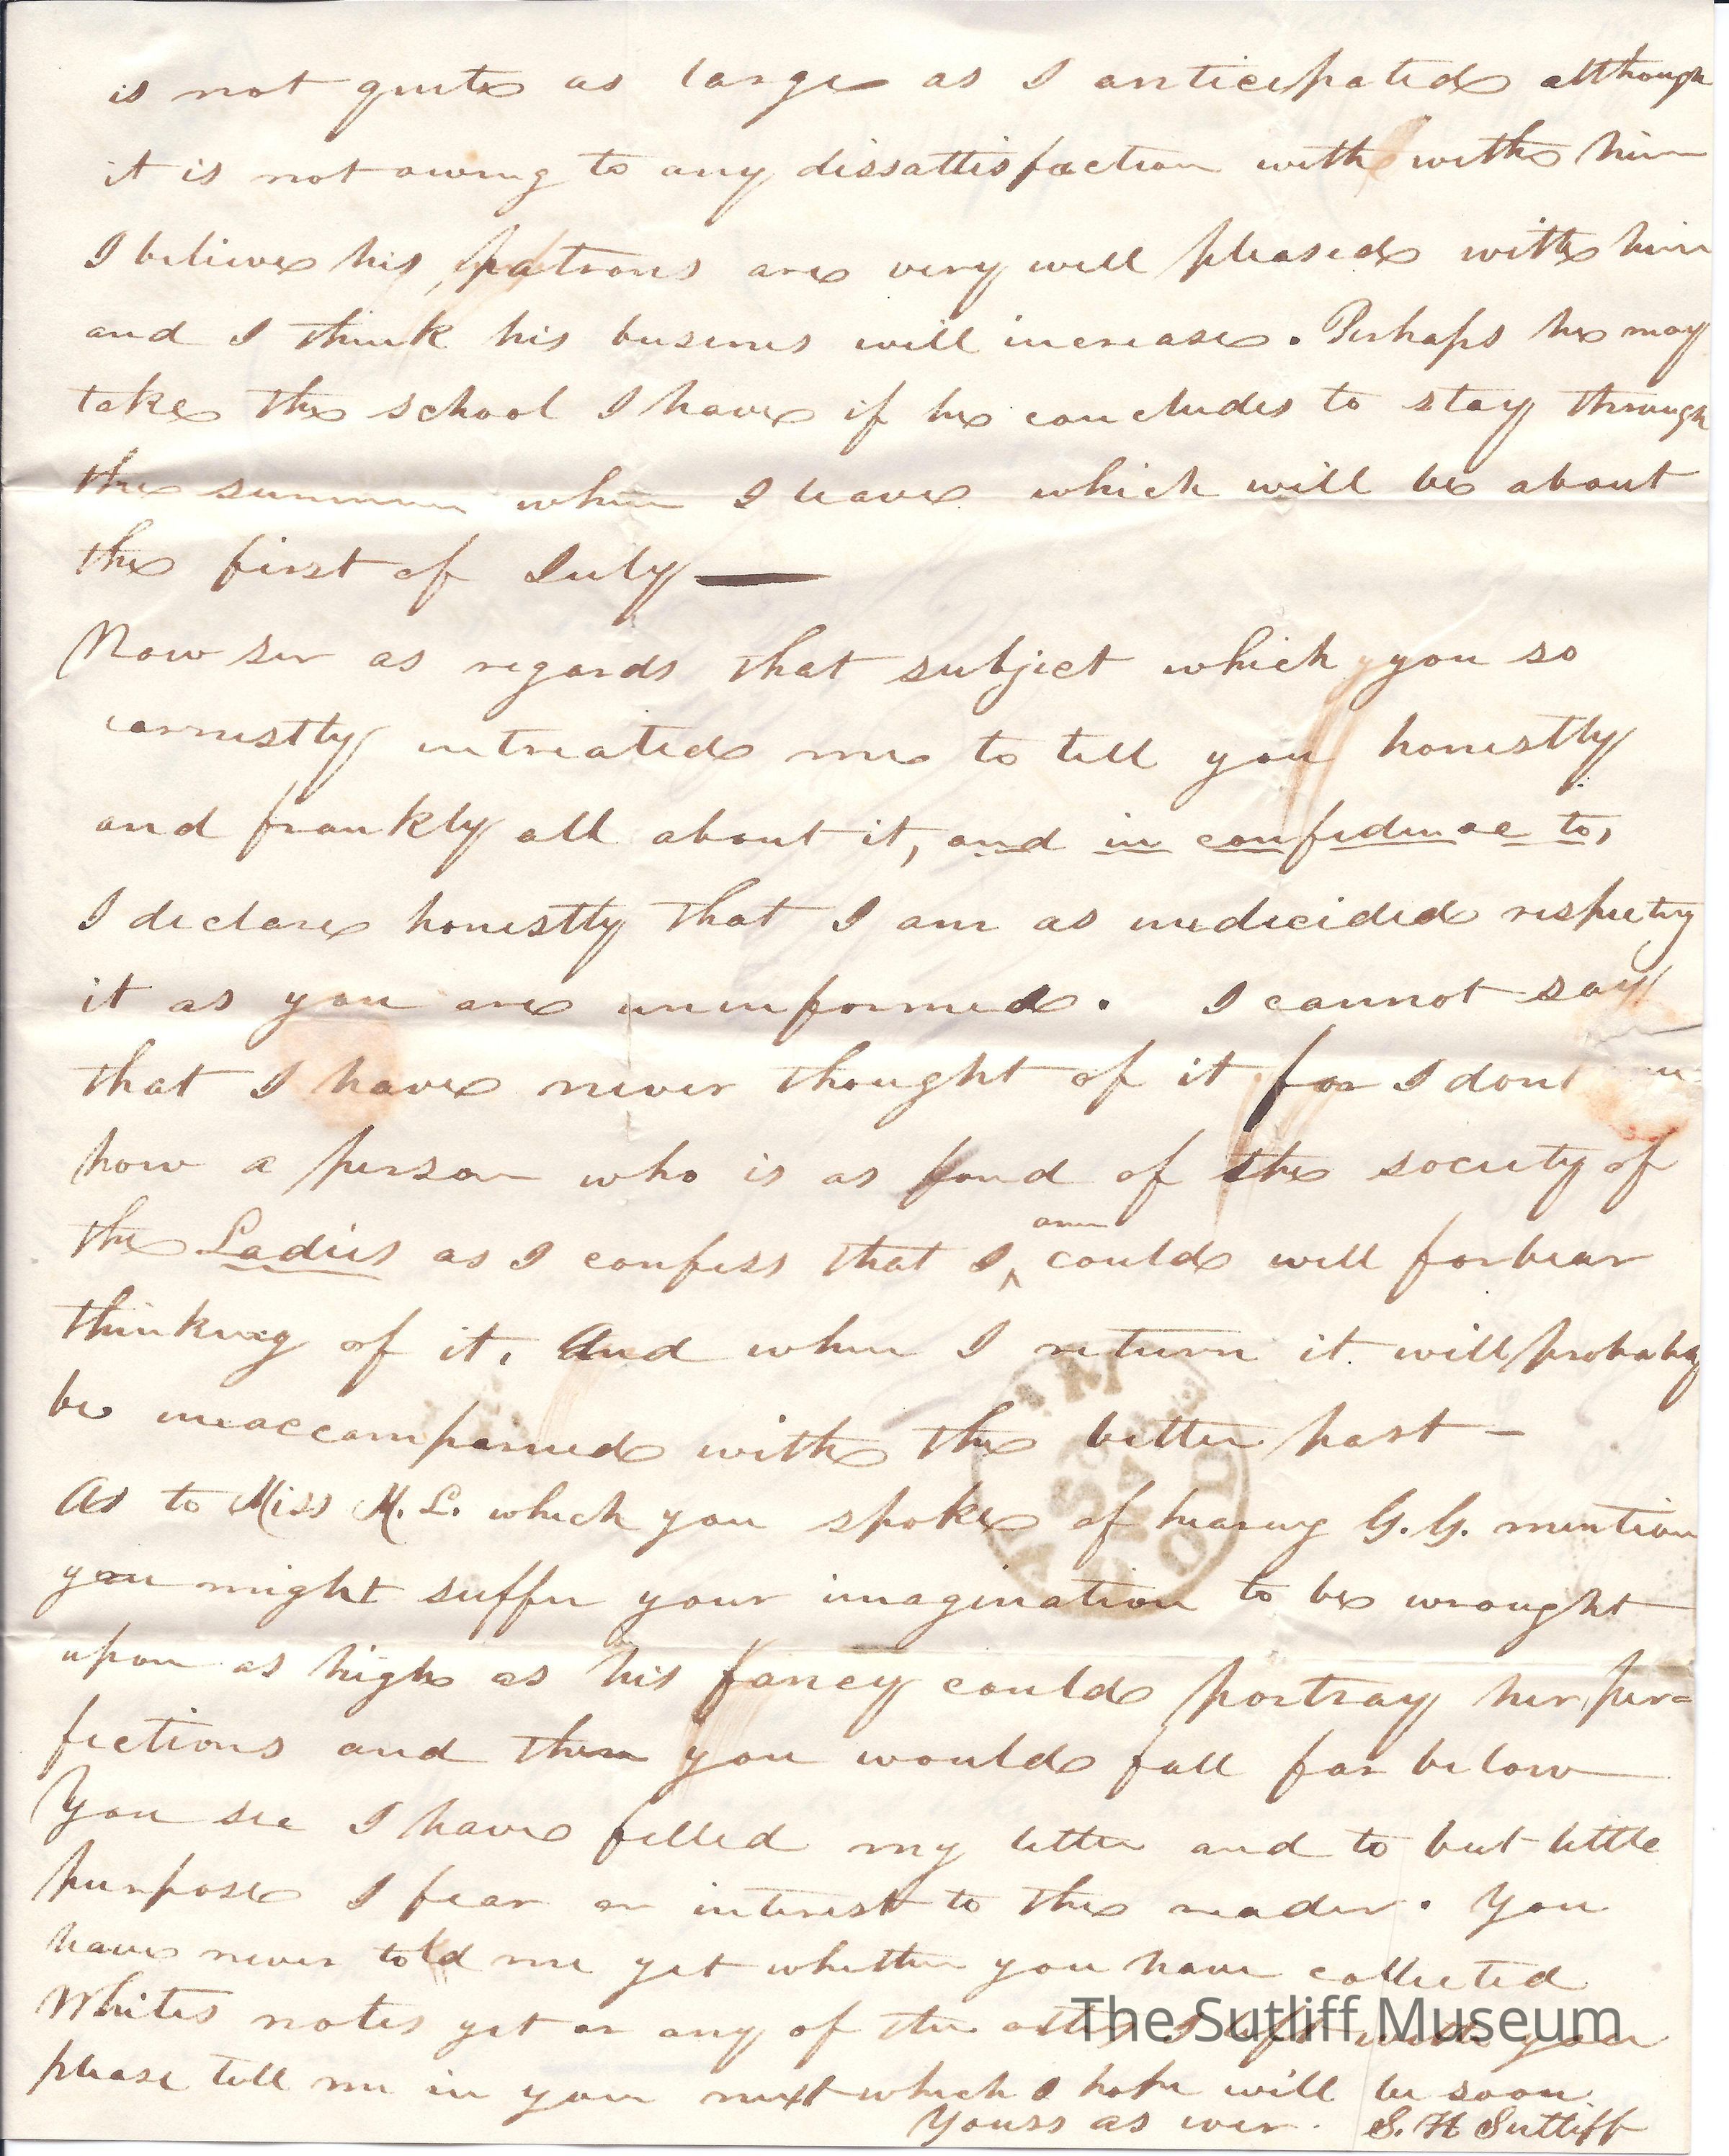 is not quite as large as I anticipated although
it is not owing to any dissattisfaction with with him
I believe his patrons are very well pleased with him
and I think his busines will increase. Perhaps he may
take the school I have if he concludes to stay through
the summer when I leave which will be about
the first of July —
Now sir as regards that subject which you so
earnestly intreated me to tell you honestly
and frankly all about it, and in confidence to,
I declare honestly that I am as undecided respecting
it as you are uninformed. I cannot say
that I have never thought of it for I dont
how a person who is as fond of the society of
the Ladies as I confess that I am could well forbear
thinking of it. And when I return it will probably
be unaccompanied with the better part —
As to Miss M. L. which you spoke of hearing G. G. mention
you might suffer your imagination to be wrought
upon as high as his fancy could portray her per=
fections and then you would fall far below
You see I have filled my letter and to but little
purpose I fear or interest to the reader. You
have never told me yet whether you have collected
Whites notes yet or any of the others I left with you
please tell me in your next which I hope will be soon
Yours as ever. S. H Sutliff
The Sutliff Museum